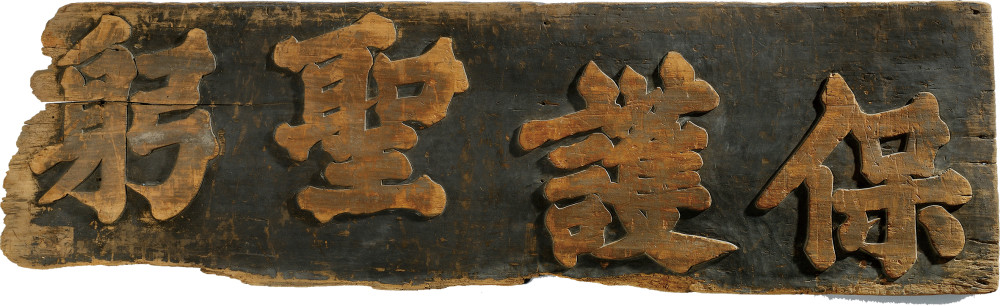 保護聖躬